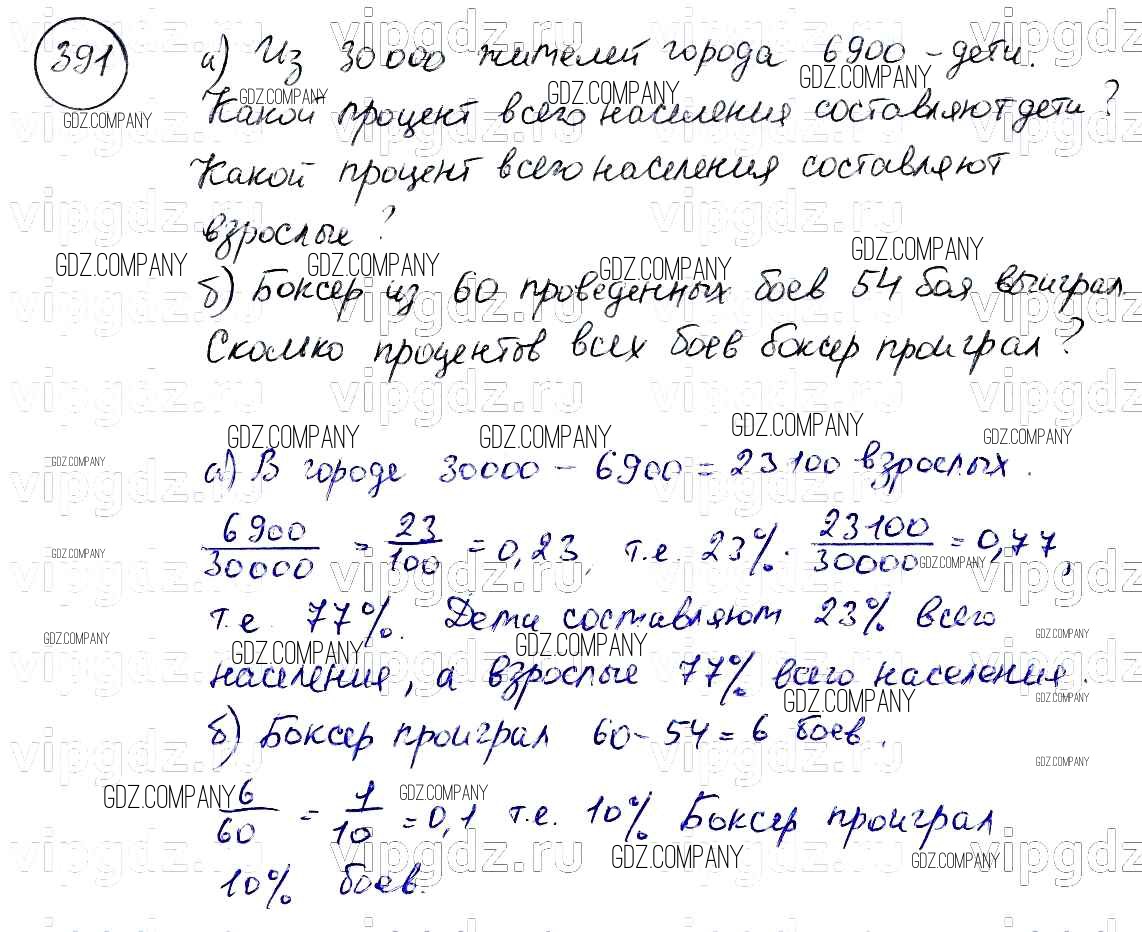 391
а) Из 30000 жителей города 6900 - дети.
Какой процент всего населения составляют дети?
Какой процент всего населения составляют
взрослые?
б) Боксер из 60 проведенных боев 54 боя выиграл
Сколько процентов всех боев боксер проиграл?
а) В городе 30000 - 6900 = 23100 взрослых.
6900/30000 = 23/100 = 0,23, т.е. 23%. 23100/30000 = 0,77,
т.е. 77%. Дети составляют 23% всего
населения, а взрослые 77% всего населения.
б) Боксер проиграл 60 - 54 = 6 боев.
6/60 = 1/10 = 0,1 т.е. 10% Боксер проиграл
10% боев.
vipgdz.ru
GDZ.COMPANY